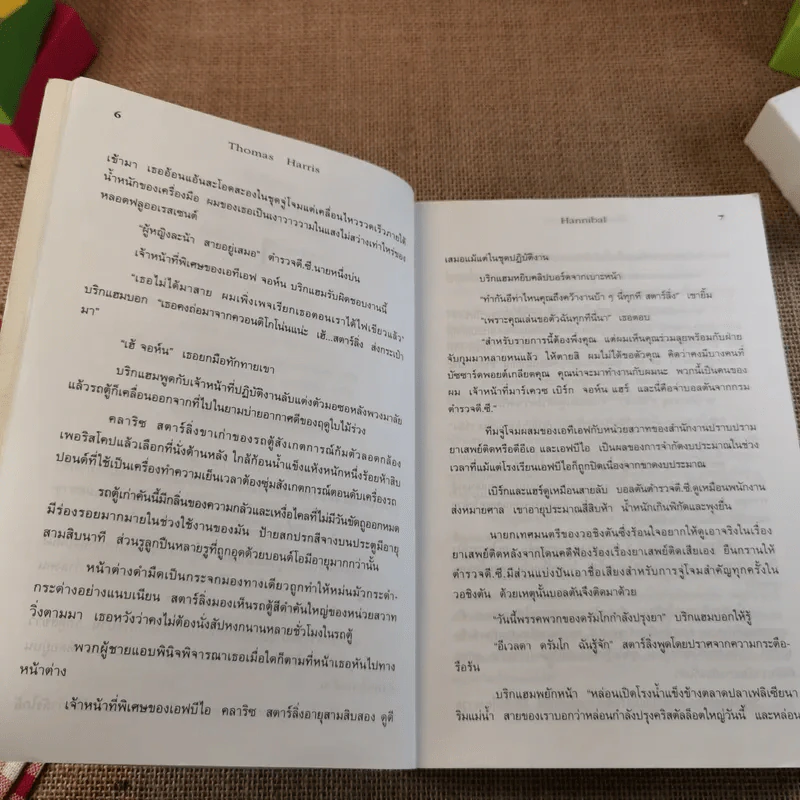 6
Thomas Harris
เข้ามา เธออ้อนแอ้นสะโอดสะองในชุดจู่โจมแต่เคลื่อนไหวรวดเร็วภายใต้
น้ำหนักของเครื่องมือ ผมของเธอเป็นเงาวาววามในแสงไม่สว่างเท่าไหร่ของ
หลอดฟลูออเรสเซนต์
"ผู้หญิงละน้า สายอยู่เสมอ" ตำรวจดี.ซี.นายหนึ่งบ่น
เจ้าหน้าที่พิเศษของเอทีเอฟ จอห์น บริกแฮมรับผิดชอบงานนี้
"เธอไม่ได้มาสาย ผมเพิ่งเพจเรียกเธอตอนเราได้ไฟเขียวแล้ว"
บริกแฮมบอก "เธอคงถ่อมาจากควอนติโกโน่นแน่ะ เฮ้...สตาร์ลิ่ง ส่งกระเป๋า
มา"
"เฮ้ จอห์น" เธอยกมือทักทายเขา
บริกแฮมพูดกับเจ้าหน้าที่ปฏิบัติงานลับแต่งตัวมอซอหลังพวงมาลัย
แล้วรถตู้ก็เคลื่อนออกจากที่ไปในยามบ่ายอากาศดีของฤดูใบไม้ร่วง
คลาริซ สตาร์ลิ่งขาเก่าของรถตู้สังเกตการณ์ก้มตัวลอดกล้อง
เพอริสโคปแล้วเลือกที่นั่งด้านหลัง ใกล้ก้อนน้ำแข็งแห้งหนักหนึ่งร้อยห้าสิบ
ปอนด์ที่ใช้เป็นเครื่องทำความเย็นเวลาต้องซุ่มสังเกตการณ์ตอนดับเครื่องรถ
รถตู้เก่าคันนี้มีกลิ่นของความกลัวและเหงื่อไคลที่ไม่มีวันขัดถูออกหมด
มีร่องรอยมากมายในช่วงใช้งานของมัน ป้ายสกปรกสีจางบนประตูมีอายุ
สามสิบนาที ส่วนรูลูกปืนหลายรูที่ถูกอุดด้วยบอนด์โอมีอายุมากกว่านั้น
หน้าต่างดำมืดเป็นกระจกมองทางเดียวถูกทำให้หม่นมัวกระดำ-
กระด่างอย่างแนบเนียน สตาร์ลิ่งมองเห็นรถตู้สีดำคันใหญ่ของหน่วยสวาท
วิ่งตามมา เธอหวังว่าคงไม่ต้องนั่งสัปหงกนานหลายชั่วโมงในรถตู้
พวกผู้ชายแอบพินิจพิจารณาเธอเมื่อใดก็ตามที่หน้าเธอหันไปทาง
หน้าต่าง
เจ้าหน้าที่พิเศษของเอฟบีไอ คลาริซ สตาร์ลิ่งอายุสามสิบสอง ดูดี
Hannibal
7
เสมอแม้แต่ในชุดปฏิบัติงาน
บริกแฮมหยิบคลิปบอร์ดจากเบาะหน้า
"ทำกันอีท่าไหนคุณถึงคว้างานบ้า ๆ นี่ทุกที สตาร์ลิ่ง" เขายิ้ม
"เพราะคุณเล่นขอตัวฉันทุกทีนี่นา" เธอตอบ
"สำหรับรายการนี้ต้องพึ่งคุณ แต่ผมเห็นคุณร่วมลุยพร้อมกับฝ่าย
จับกุมมาหลายหนแล้ว ให้ตายสิ ผมไม่ได้ขอตัวคุณ คิดว่าคงมีบางคนที่
บัซซาร์ดพอยต์เกลียดคุณ คุณน่าจะมาทำงานกับผมนะ พวกนี้เป็นคนของ
ผม เจ้าหน้าที่มาร์เควซ เบิร์ก จอห์น แฮร์ และนี่คือจ่าบอลตันจากกรม
ตำรวจดี.ซี."
ทีมจู่โจมผสมของเอทีเอฟกับหน่วยสวาทของสำนักงานปราบปราม
ยาเสพย์ติดหรือดีอีเอ และเอฟบีไอ เป็นผลของการจำกัดงบประมาณในช่วง
เวลาที่แม้แต่โรงเรียนเอฟบีไอก็ถูกปิดเนื่องจากขาดงบประมาณ
เบิร์กและแฮร์ดูเหมือนสายลับ บอลตันตำรวจดี.ซี.ดูเหมือนพนักงาน
ส่งหมายศาล เขาอายุประมาณสี่สิบห้า น้ำหนักเกินพิกัดและพุงยื่น
นายกเทศมนตรีของวอชิงตันซึ่งร้อนใจอยากให้ดูเอาจริงในเรื่อง
ยาเสพย์ติดหลังจากโดนคดีฟ้องร้องเรื่องยาเสพย์ติดเสียเอง ยืนกรานให้
ตำรวจดี.ซี.มีส่วนแบ่งปันเอาชื่อเสียงสำหรับการจู่โจมสำคัญทุกครั้งใน
วอชิงตัน ด้วยเหตุนั้นบอลตันจึงติดมาด้วย
"วันนี้พรรคพวกของดรัมโกกำลังปรุงยา" บริกแฮมบอกให้รู้
"อีเวลดา ดรัมโก ฉันรู้จัก" สตาร์ลิ่งพูดโดยปราศจากความกระตือ-
รือร้น
บริกแฮมพยักหน้า "หล่อนเปิดโรงน้ำแข็งข้างตลาดปลาเฟลิเซียนา
ริมแม่น้ำ สายของเราบอกว่าหล่อนกำลังปรุงคริสตัลล็อตใหญ่วันนี้ และหล่อน